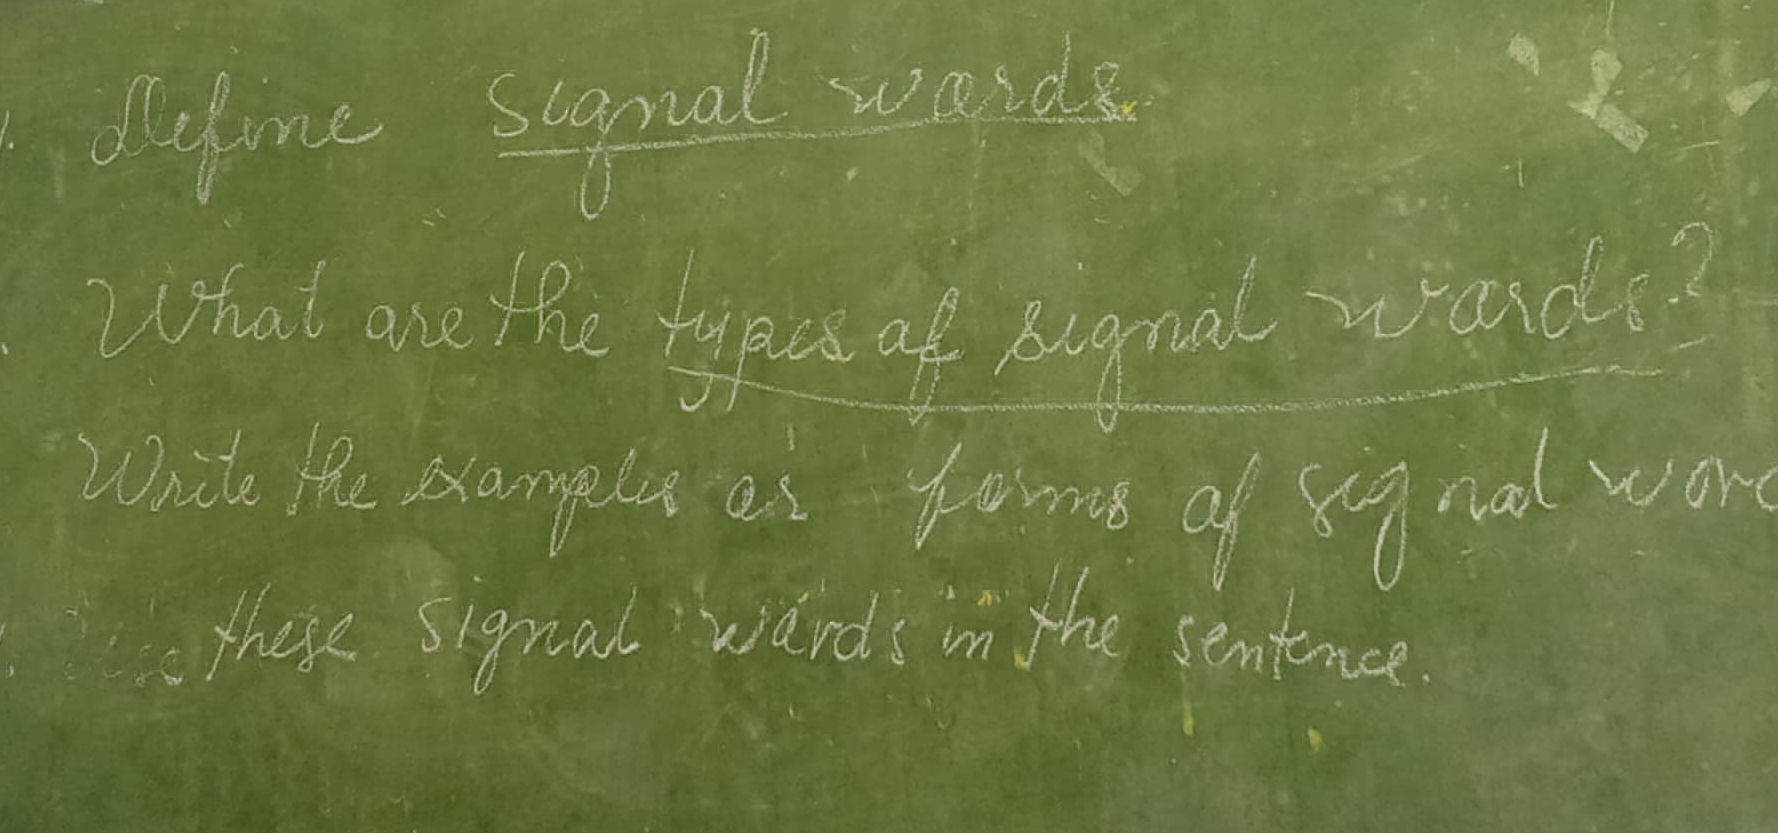 Define signal words.
What are the types of signal words?
Write the examples or forms of signal word
Use these signal words in the sentence.